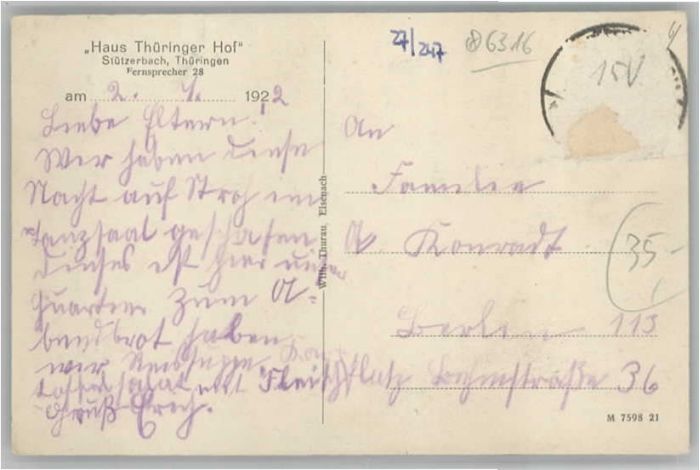 „Haus Thüringer Hof"
Stützerbach, Thüringen
Fernsprecher 28
am 2. 7. 1922
Liebe Eltern!
Wir haben diese
Nacht auf Stroh im
Tanzsaal geschafen
dieses ist hier unser
Quartier Zum A-
bendbrot haben
wir Reissuppe Kar-
toffelsalat mit Fleisch
Gruß Erich.
Wilh. Thurau, Eisenach
27/247
6316
15V
An
Familie
A Konradt
35-
Berlin 113
platz Behmstraße 36
M 7598 21